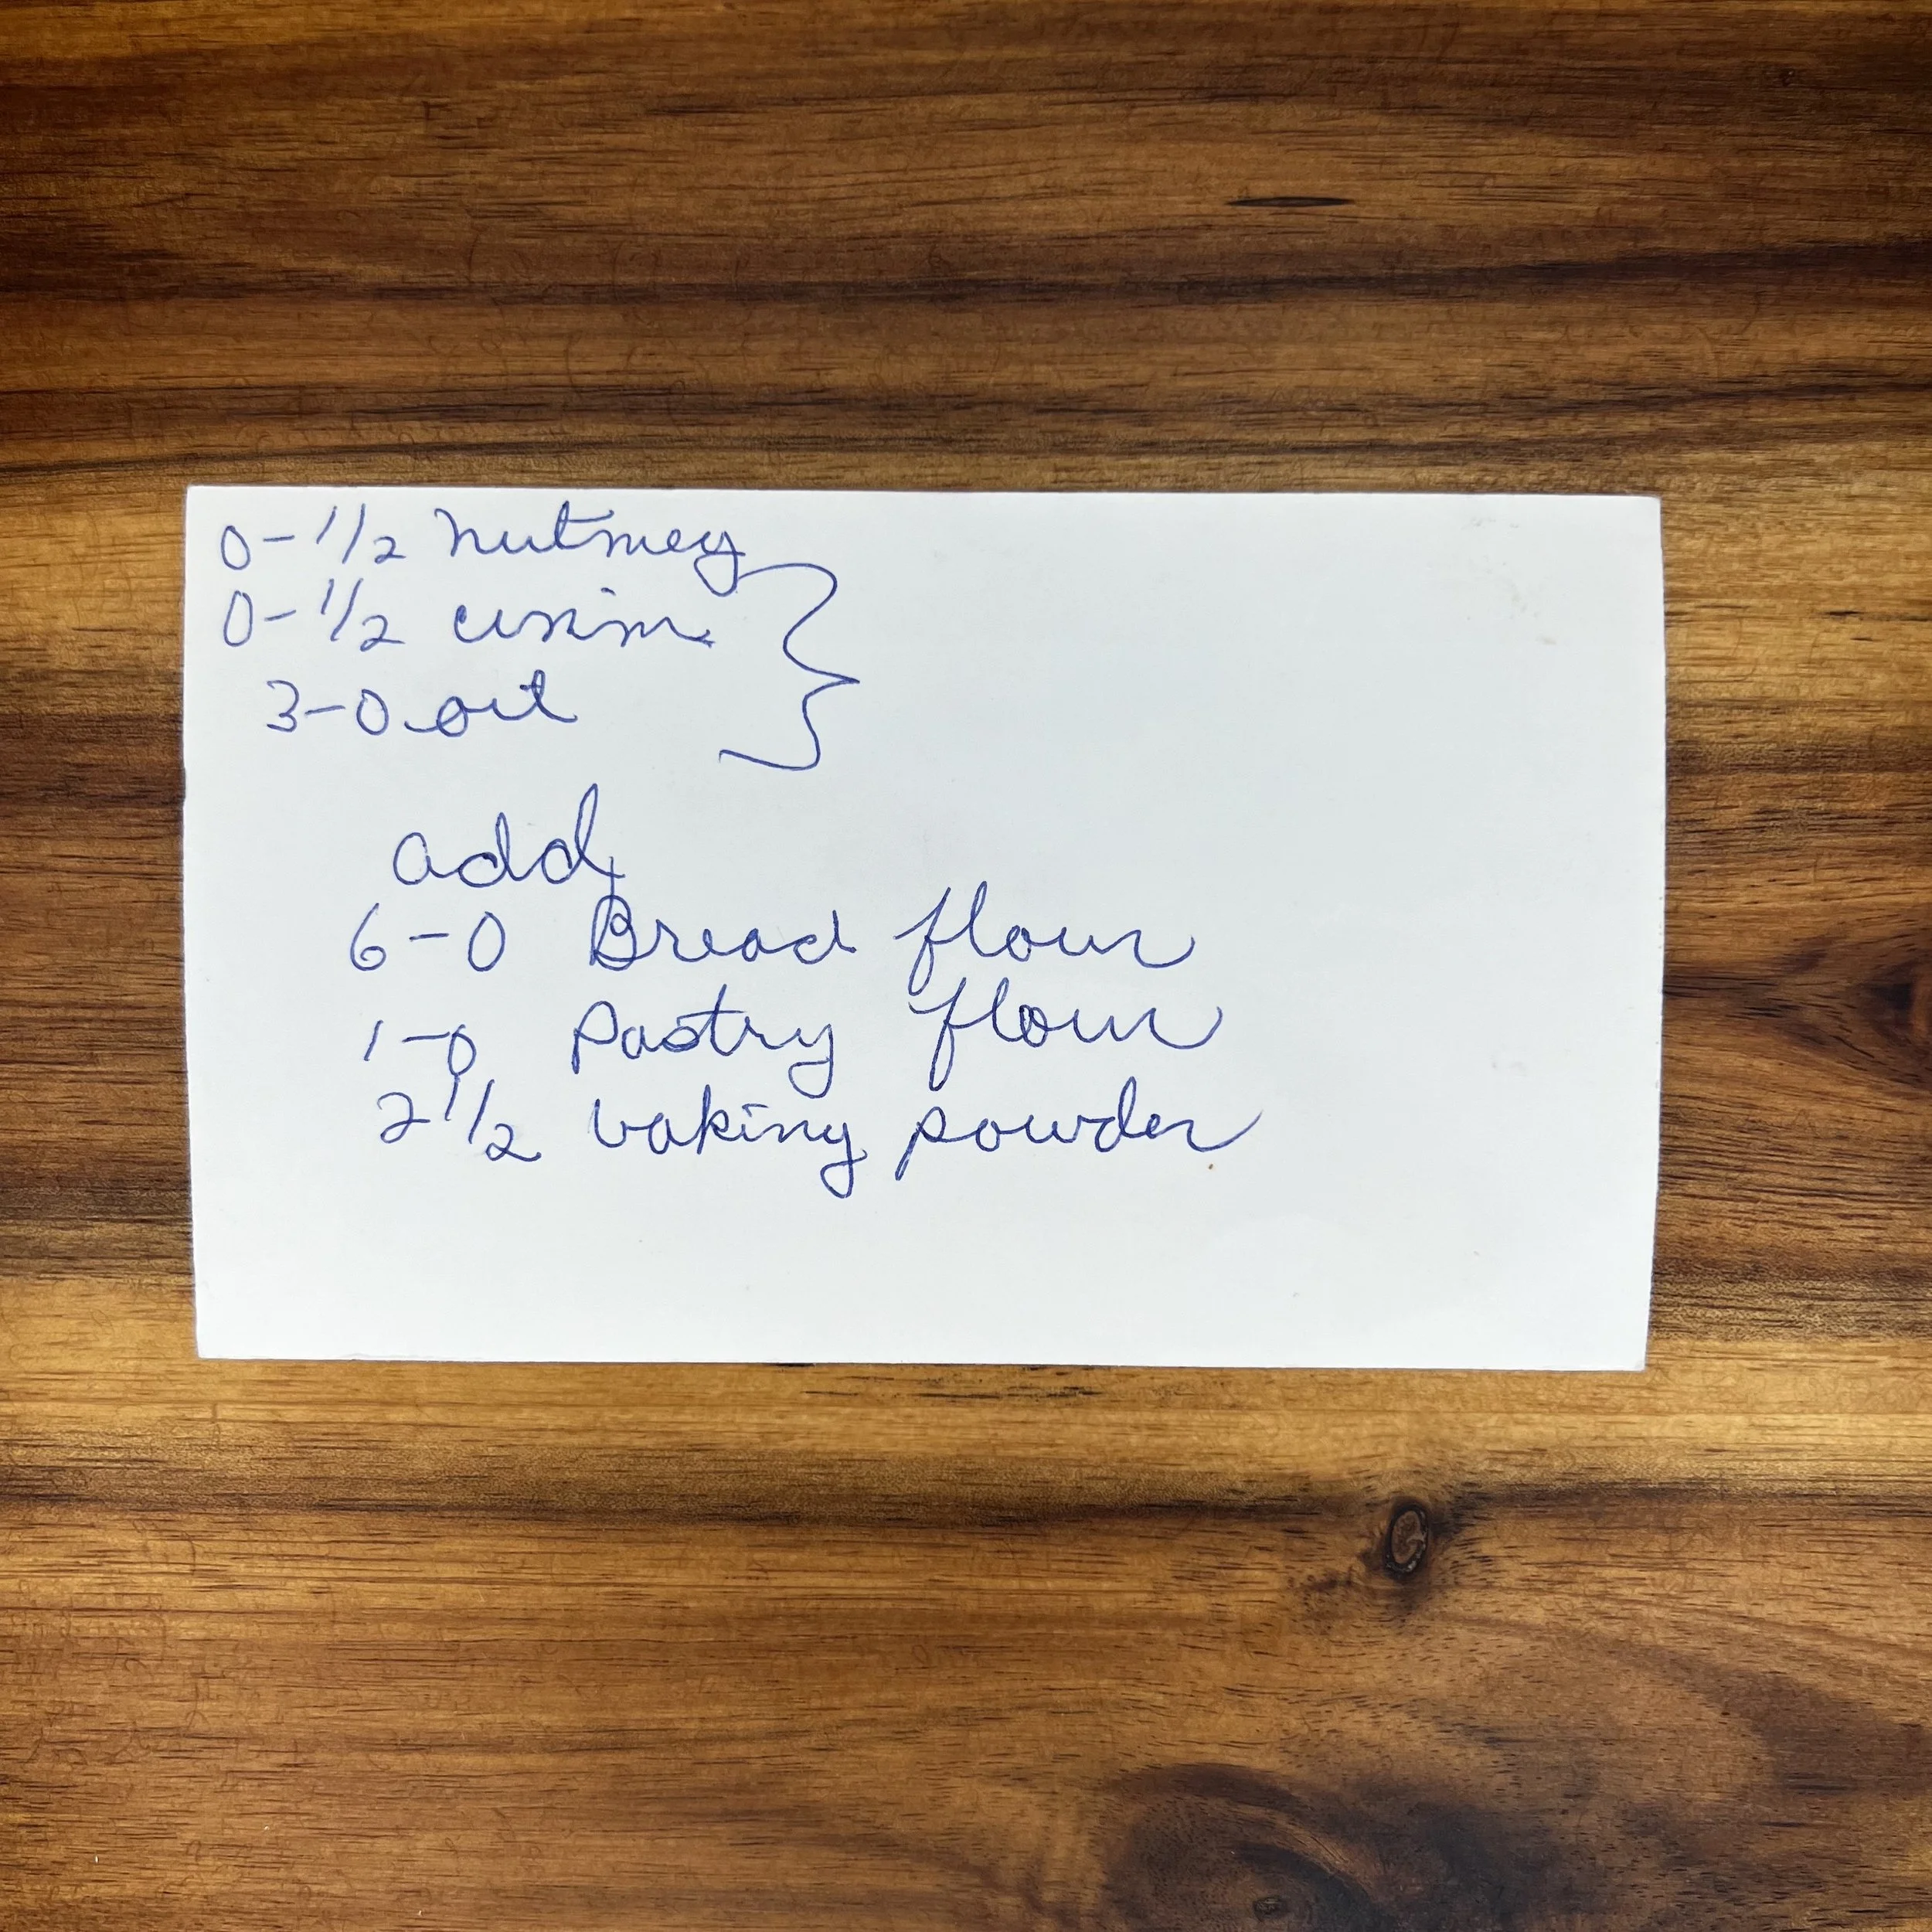 0-1/2 nutmeg
0-1/2
3-0 oil
add
6-0 Bread flour
1-0 Pastry flour
2 1/2 baking powder